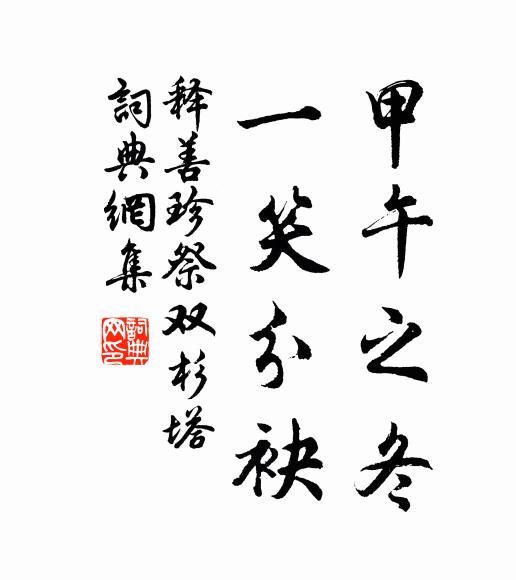 甲午之冬
一笑分袂
释善珍祭双杉塔
詞典網集
詞典网印